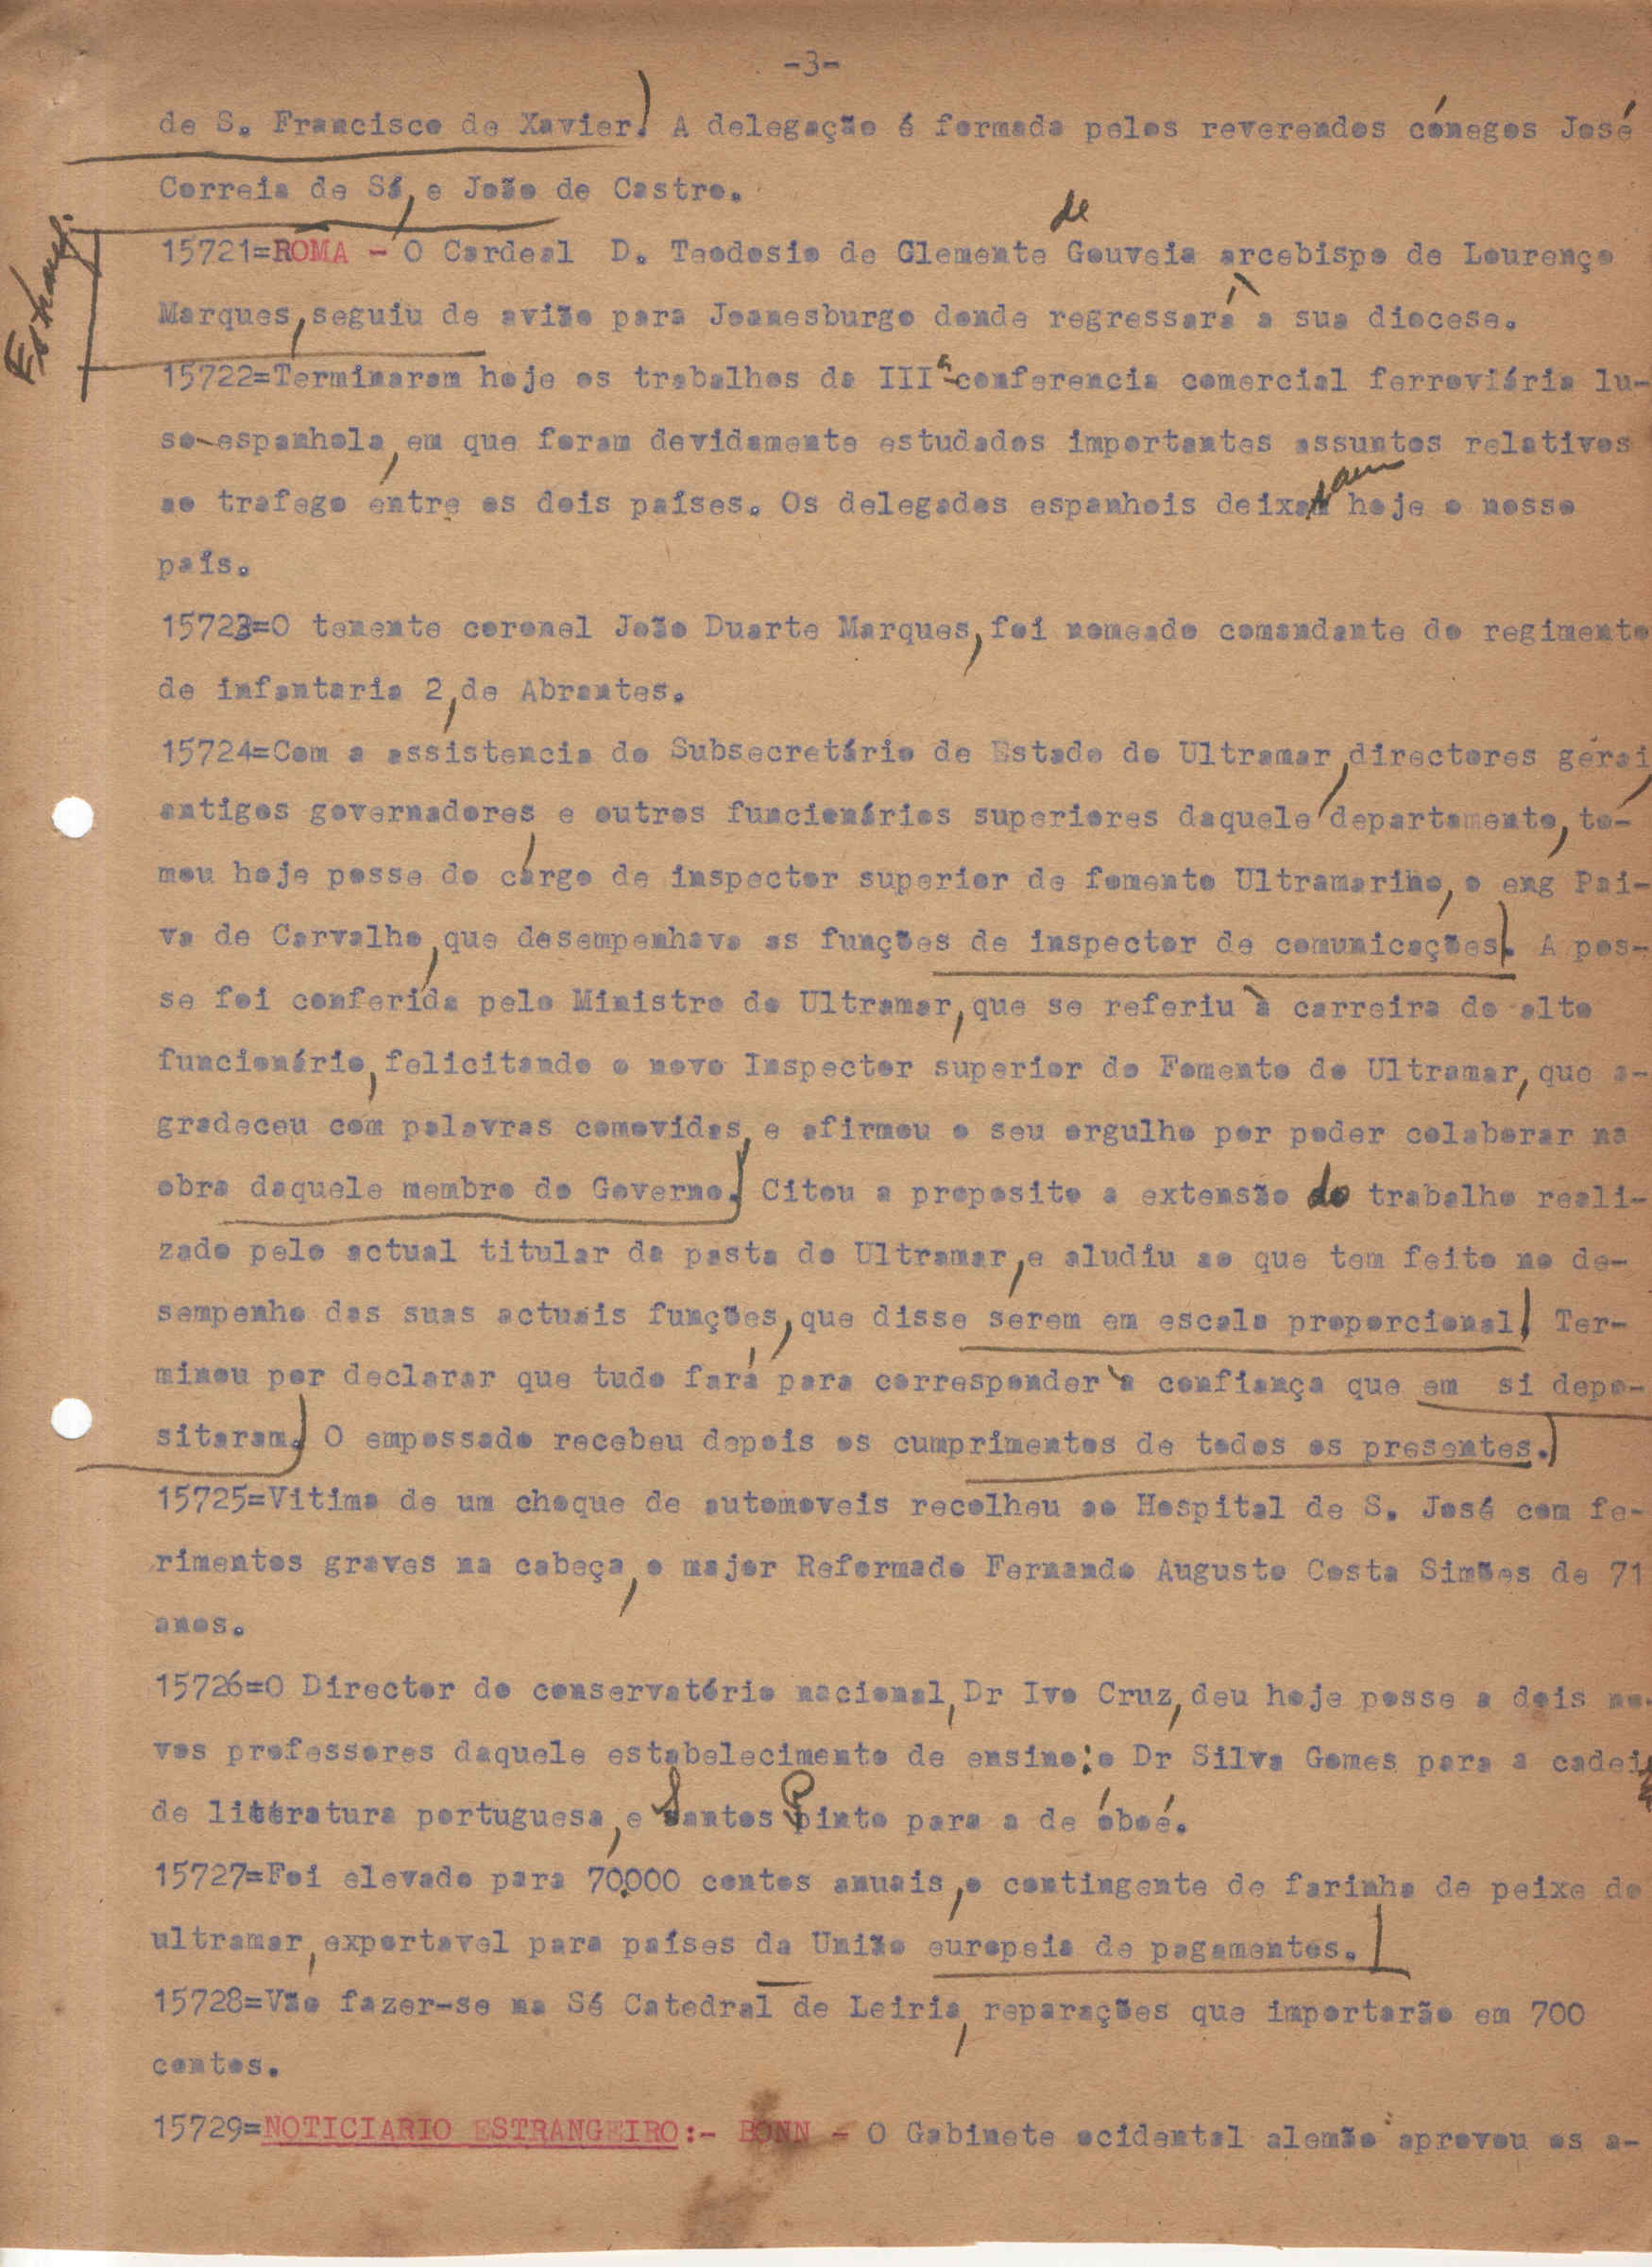 -3-
de S. Francisco de Xavier. A delegação é formada pelos reverendos cónegos José
Correia de Sá, e João de Castro.
Estrang.
de
15721=ROMA - O Cardeal D. Teodosio de Clemente Gouveia arcebispo de Lourenço
Marques, seguiu de avião para Joanesburgo donde regressará à sua diocese.
15722=Terminaram hoje os trabalhos da IIIª-conferencia comercial ferroviária lu-
so-espanhola, em que foram devidamente estudados importantes assuntos relativos
ao trafego entre os dois países. Os delegados espanhois deixaram hoje o nosso
país.
15723=O tenente coronel João Duarte Marques, foi nomeado comandante do regimento
de infantaria 2, de Abrantes.
15724=Com a assistencia do Subsecretário de Estado do Ultramar, directores gerai,
antigos governadores e outros funcionários superiores daquele departamento, to-
mou hoje posse do cargo de inspector superior de fomento Ultramarino, o eng Pai-
va de Carvalho, que desempenhava as funções de inspector de comunicações. A pos-
se foi conferida pelo Ministro do Ultramar, que se referiu à carreira do alto
funcionário, felicitando o novo Inspector superior do Fomento do Ultramar, que a-
gradeceu com palavras comovidas, e afirmou o seu orgulho por poder colaborar na
obra daquele membro do Governo. Citou a proposito a extensão do trabalho reali-
zado pelo actual titular da pasta do Ultramar, e aludiu ao que tem feito no de-
sempenho das suas actuais funções, que disse serem em escala proporcional. Ter-
minou por declarar que tudo fará para corresponder à confiança que em si depo-
sitaram. O empossado recebeu depois os cumprimentos de todos os presentes.
15725=Vitima de um choque de automoveis recolheu ao Hospital de S. José com fe-
rimentos graves na cabeça, o major Reformado Fernando Augusto Costa Simões de 71
anos.
15726=O Director do conservatório nacional, Dr Ivo Cruz, deu hoje posse a dois no-
vos professores daquele estabelecimento de ensino: o Dr Silva Gomes para a cadeira
de literatura portuguesa, e Santos Pinto para a de óboé.
15727=Foi elevado para 70.000 contos anuais, o contingente de farinha de peixe do
ultramar, exportavel para países da União europeia de pagamentos.
15728=Vão fazer-se na Sé Catedral de Leiria, reparações que importarão em 700
contos.
15729=NOTICIARIO ESTRANGEIRO:- BONN - O Gabinete ocidental alemão aprovou os a-